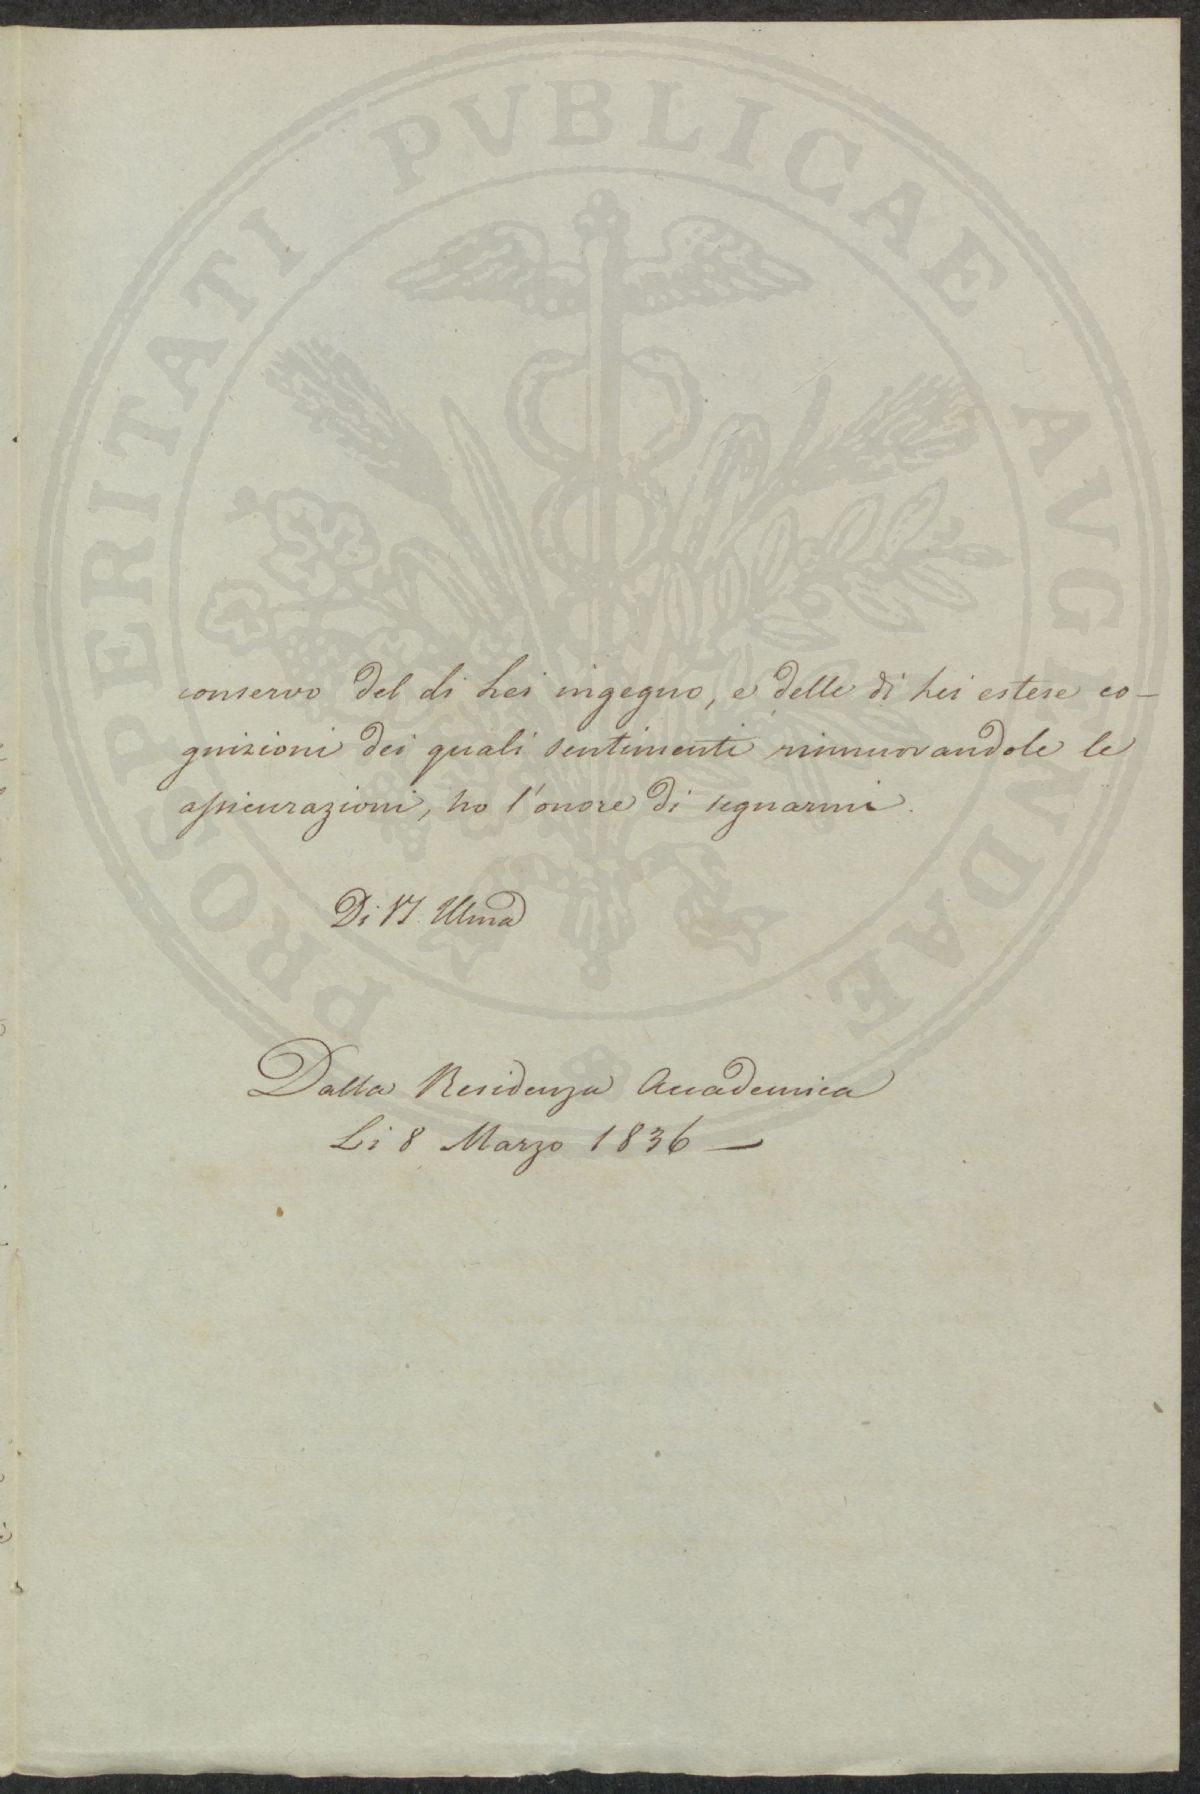 PROSPERITATI PUBLICAE AUGENDAE
conservo del di Lei ingegno, e delle di Lei estese co-
gnizioni dei quali sentimenti rinnuovandole le
assicurazioni, ho l'onore di segnarmi.
Di VS. Illma
Dalla Residenza Accademica
Li 8 Marzo 1836 —